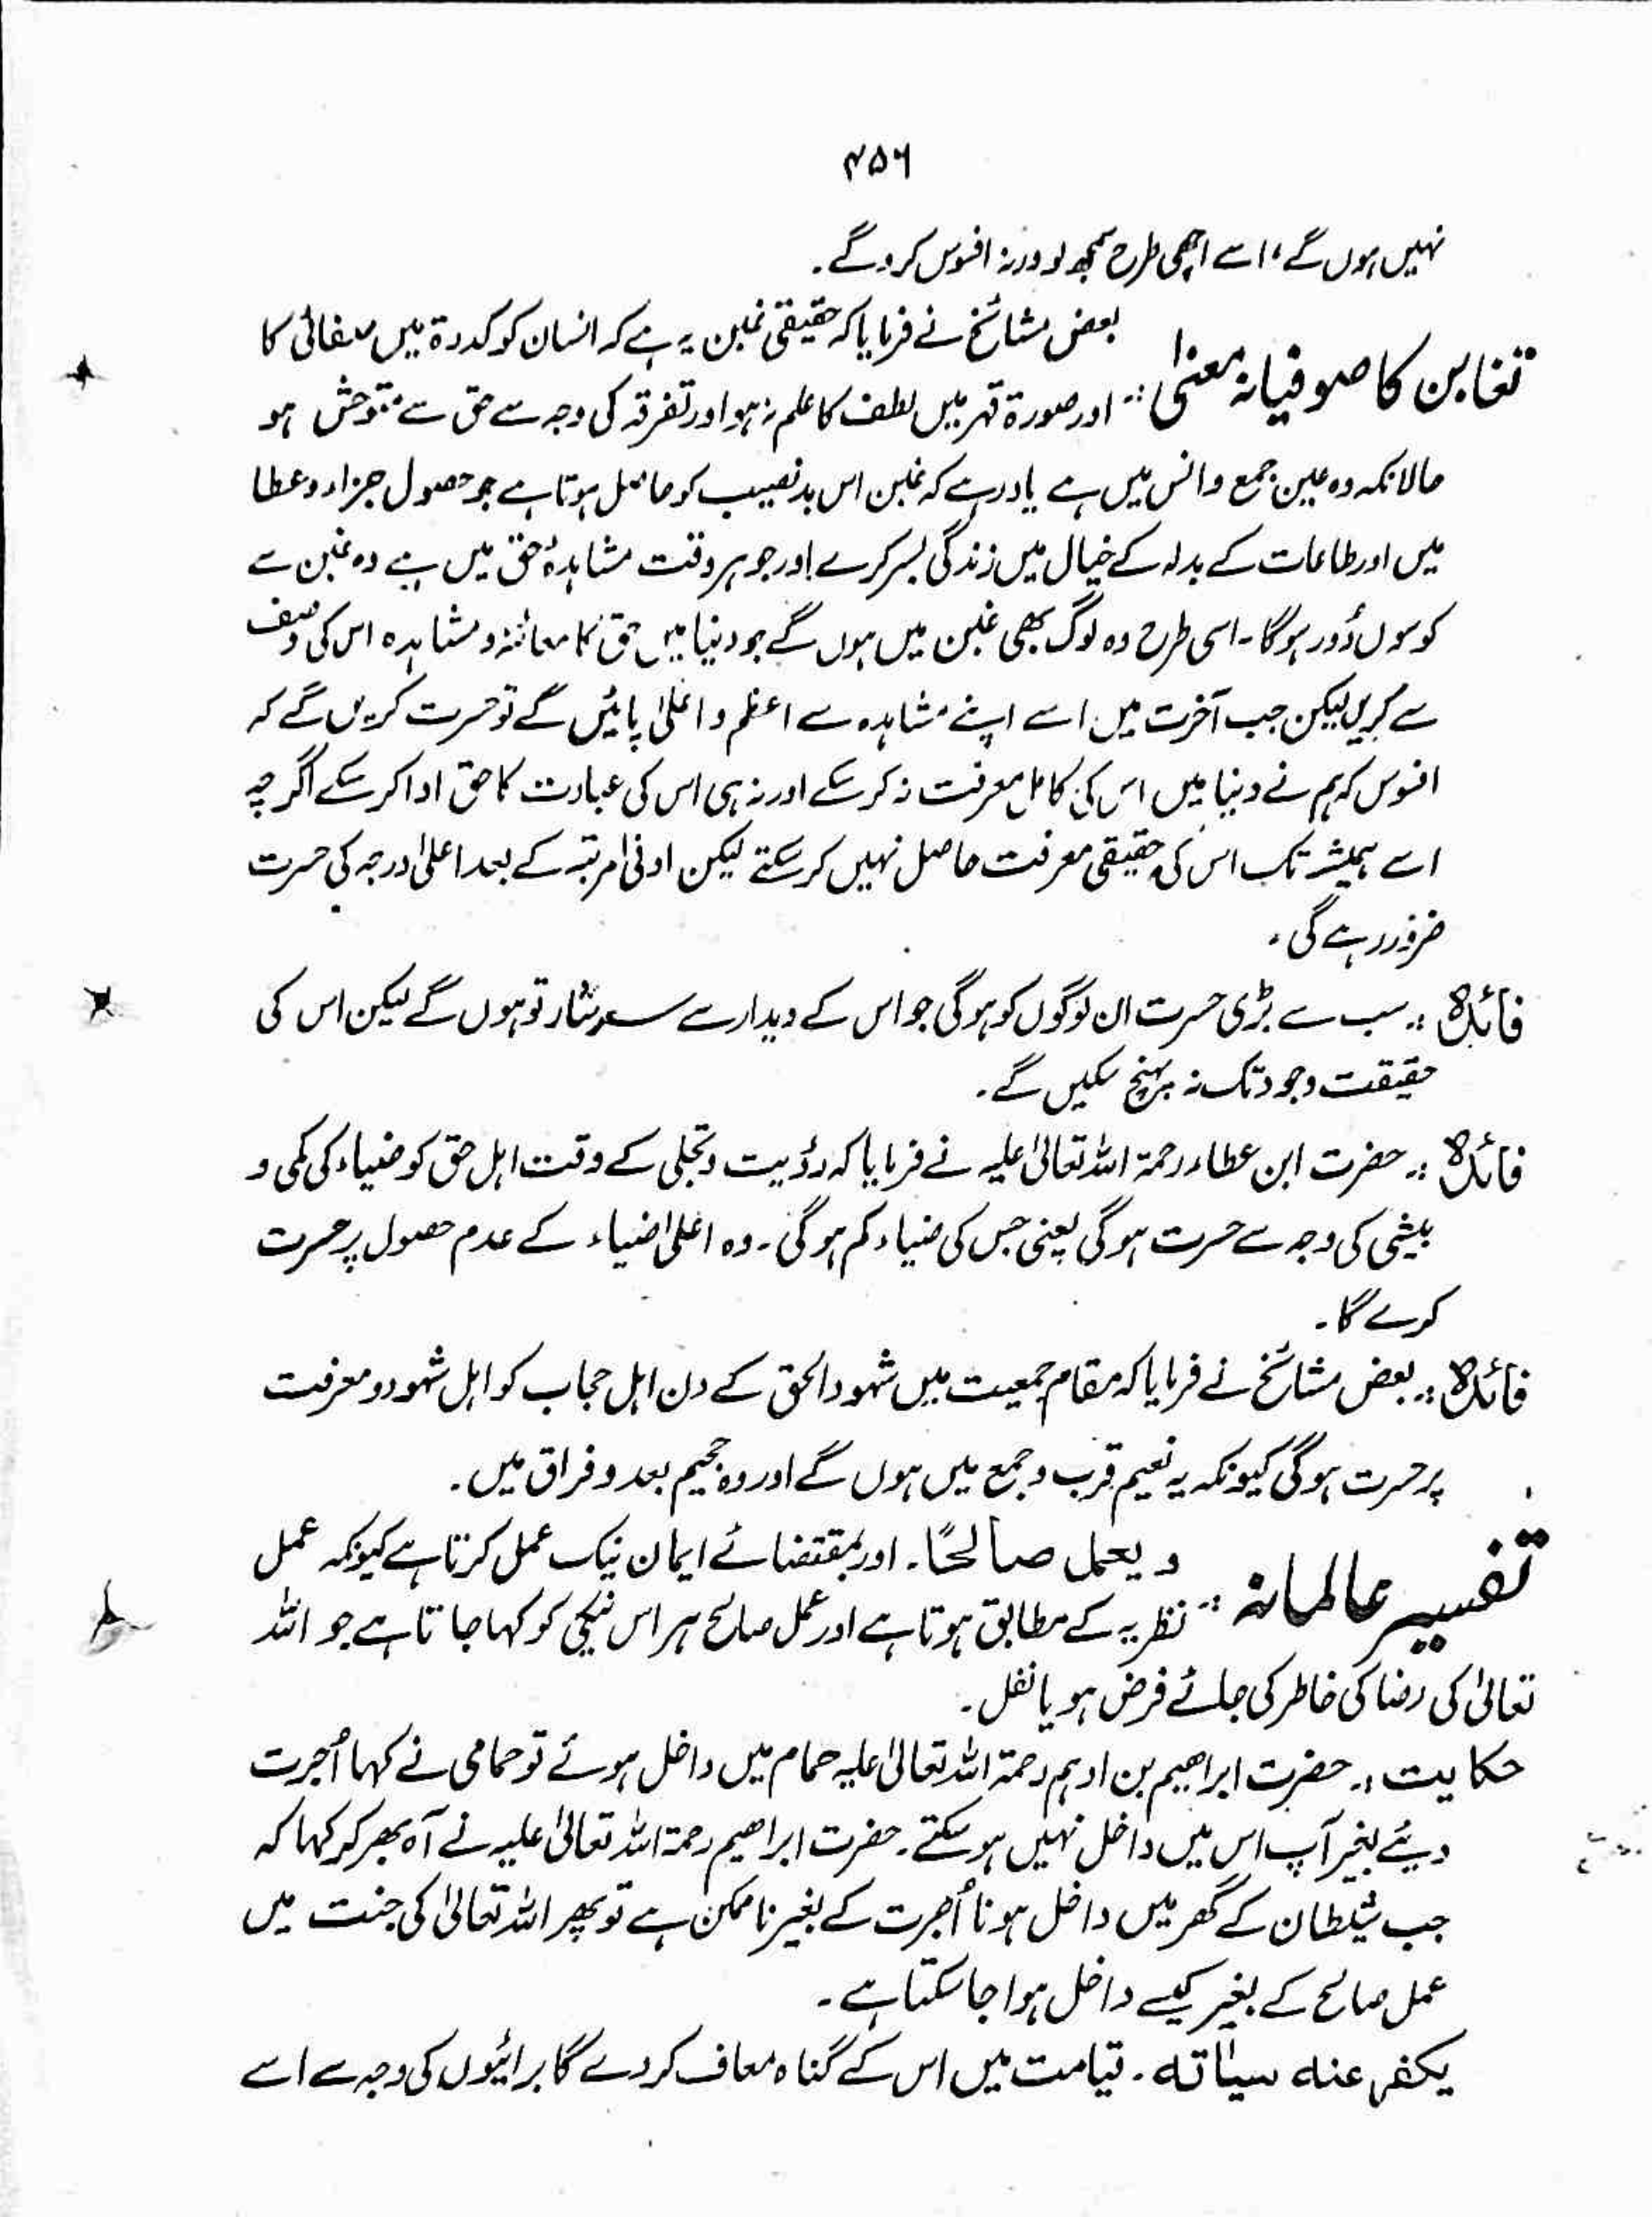 ۴۵۶
نہیں ہوں گے، اسے اچھی طرح سمجھ لو ورنہ افسوس کرو گے۔
تغابن کا صوفیانہ معنیٰ :- بعض مشائخ نے فرمایا کہ حقیقی غبن یہ ہے کہ انسان کو کدورۃ میں صفائی کا
اور صورۃ قہر میں لطف کا علم نہ ہو اور تفرقہ کی وجہ سے حق سے متوحش ہو
حالانکہ وہ عین جمع و انس میں ہے یاد رہے کہ غبن اس بدنصیب کو حاصل ہوتا ہے جو حصول جزاء و عطا
میں اور طاعات کے بدلہ کے خیال میں زندگی بسر کرے اور جو ہر وقت مشاہدۂ حق میں ہے وہ غبن سے
کوسوں دُور ہوگا۔ اسی طرح وہ لوگ بھی غبن میں ہوں گے جو دنیا میں حق کا معائنہ و مشاہدہ اس کی وصف
سے کریں لیکن جب آخرت میں اسے اپنے مشاہدہ سے اعظم و اعلیٰ پائیں گے تو حسرت کریں گے کہ
افسوس کہ ہم نے دنیا میں اس کی کامل معرفت نہ کر سکے اور نہ ہی اس کی عبادت کا حق ادا کر سکے اگرچہ
اسے ہمیشہ تک اس کی حقیقی معرفت حاصل نہیں کر سکتے لیکن ادنیٰ مرتبہ کے بعد اعلیٰ درجہ کی حسرت
ضرور رہے گی۔
فائدہ :- سب سے بڑی حسرت ان لوگوں کو ہوگی جو اس کے دیدار سے سرشار تو ہوں گے لیکن اس کی
حقیقت وجود تک نہ پہنچ سکیں گے۔
فائدہ :- حضرت ابن عطاء رحمۃ اللہ تعالیٰ علیہ نے فرمایا کہ رؤیت و تجلی کے وقت اہل حق کو ضیاء کی کمی و
بیشی کی وجہ سے حسرت ہوگی یعنی جس کی ضیاء کم ہوگی۔ وہ اعلیٰ ضیاء کے عدم حصول پر حسرت
کرے گا۔
فائدہ :- بعض مشائخ نے فرمایا کہ مقام جمعیت میں شہود الحق کے دن اہل حجاب کو اہل شہود و معرفت
پر حسرت ہوگی کیونکہ یہ نعیم قرب و جمع میں ہوں گے اور وہ جحیم بعد و فراق میں۔
تفسیر عالمانہ :- و یعمل صالحًا۔ اور بمقتضائے ایمان نیک عمل کرتا ہے کیونکہ عمل
نظریہ کے مطابق ہوتا ہے اور عمل صالح ہر اس نیکی کو کہا جاتا ہے جو اللہ
تعالیٰ کی رضا کی خاطر کی جائے فرض ہو یا نفل۔
حکایت :- حضرت ابراھیم بن ادہم رحمۃ اللہ تعالیٰ علیہ حمام میں داخل ہوئے تو حمامی نے کہا اُجرت
دیئے بغیر آپ اس میں داخل نہیں ہو سکتے۔ حضرت ابراھیم رحمۃ اللہ تعالیٰ علیہ نے آہ بھر کر کہا کہ
جب شیطان کے گھر میں داخل ہونا اُجرت کے بغیر ناممکن ہے تو پھر اللہ تعالیٰ کی جنت میں
عمل صالح کے بغیر کیسے داخل ہوا جا سکتا ہے۔
یکفر عنه سیاٰته۔ قیامت میں اس کے گناہ معاف کر دے گا برائیوں کی وجہ سے اسے